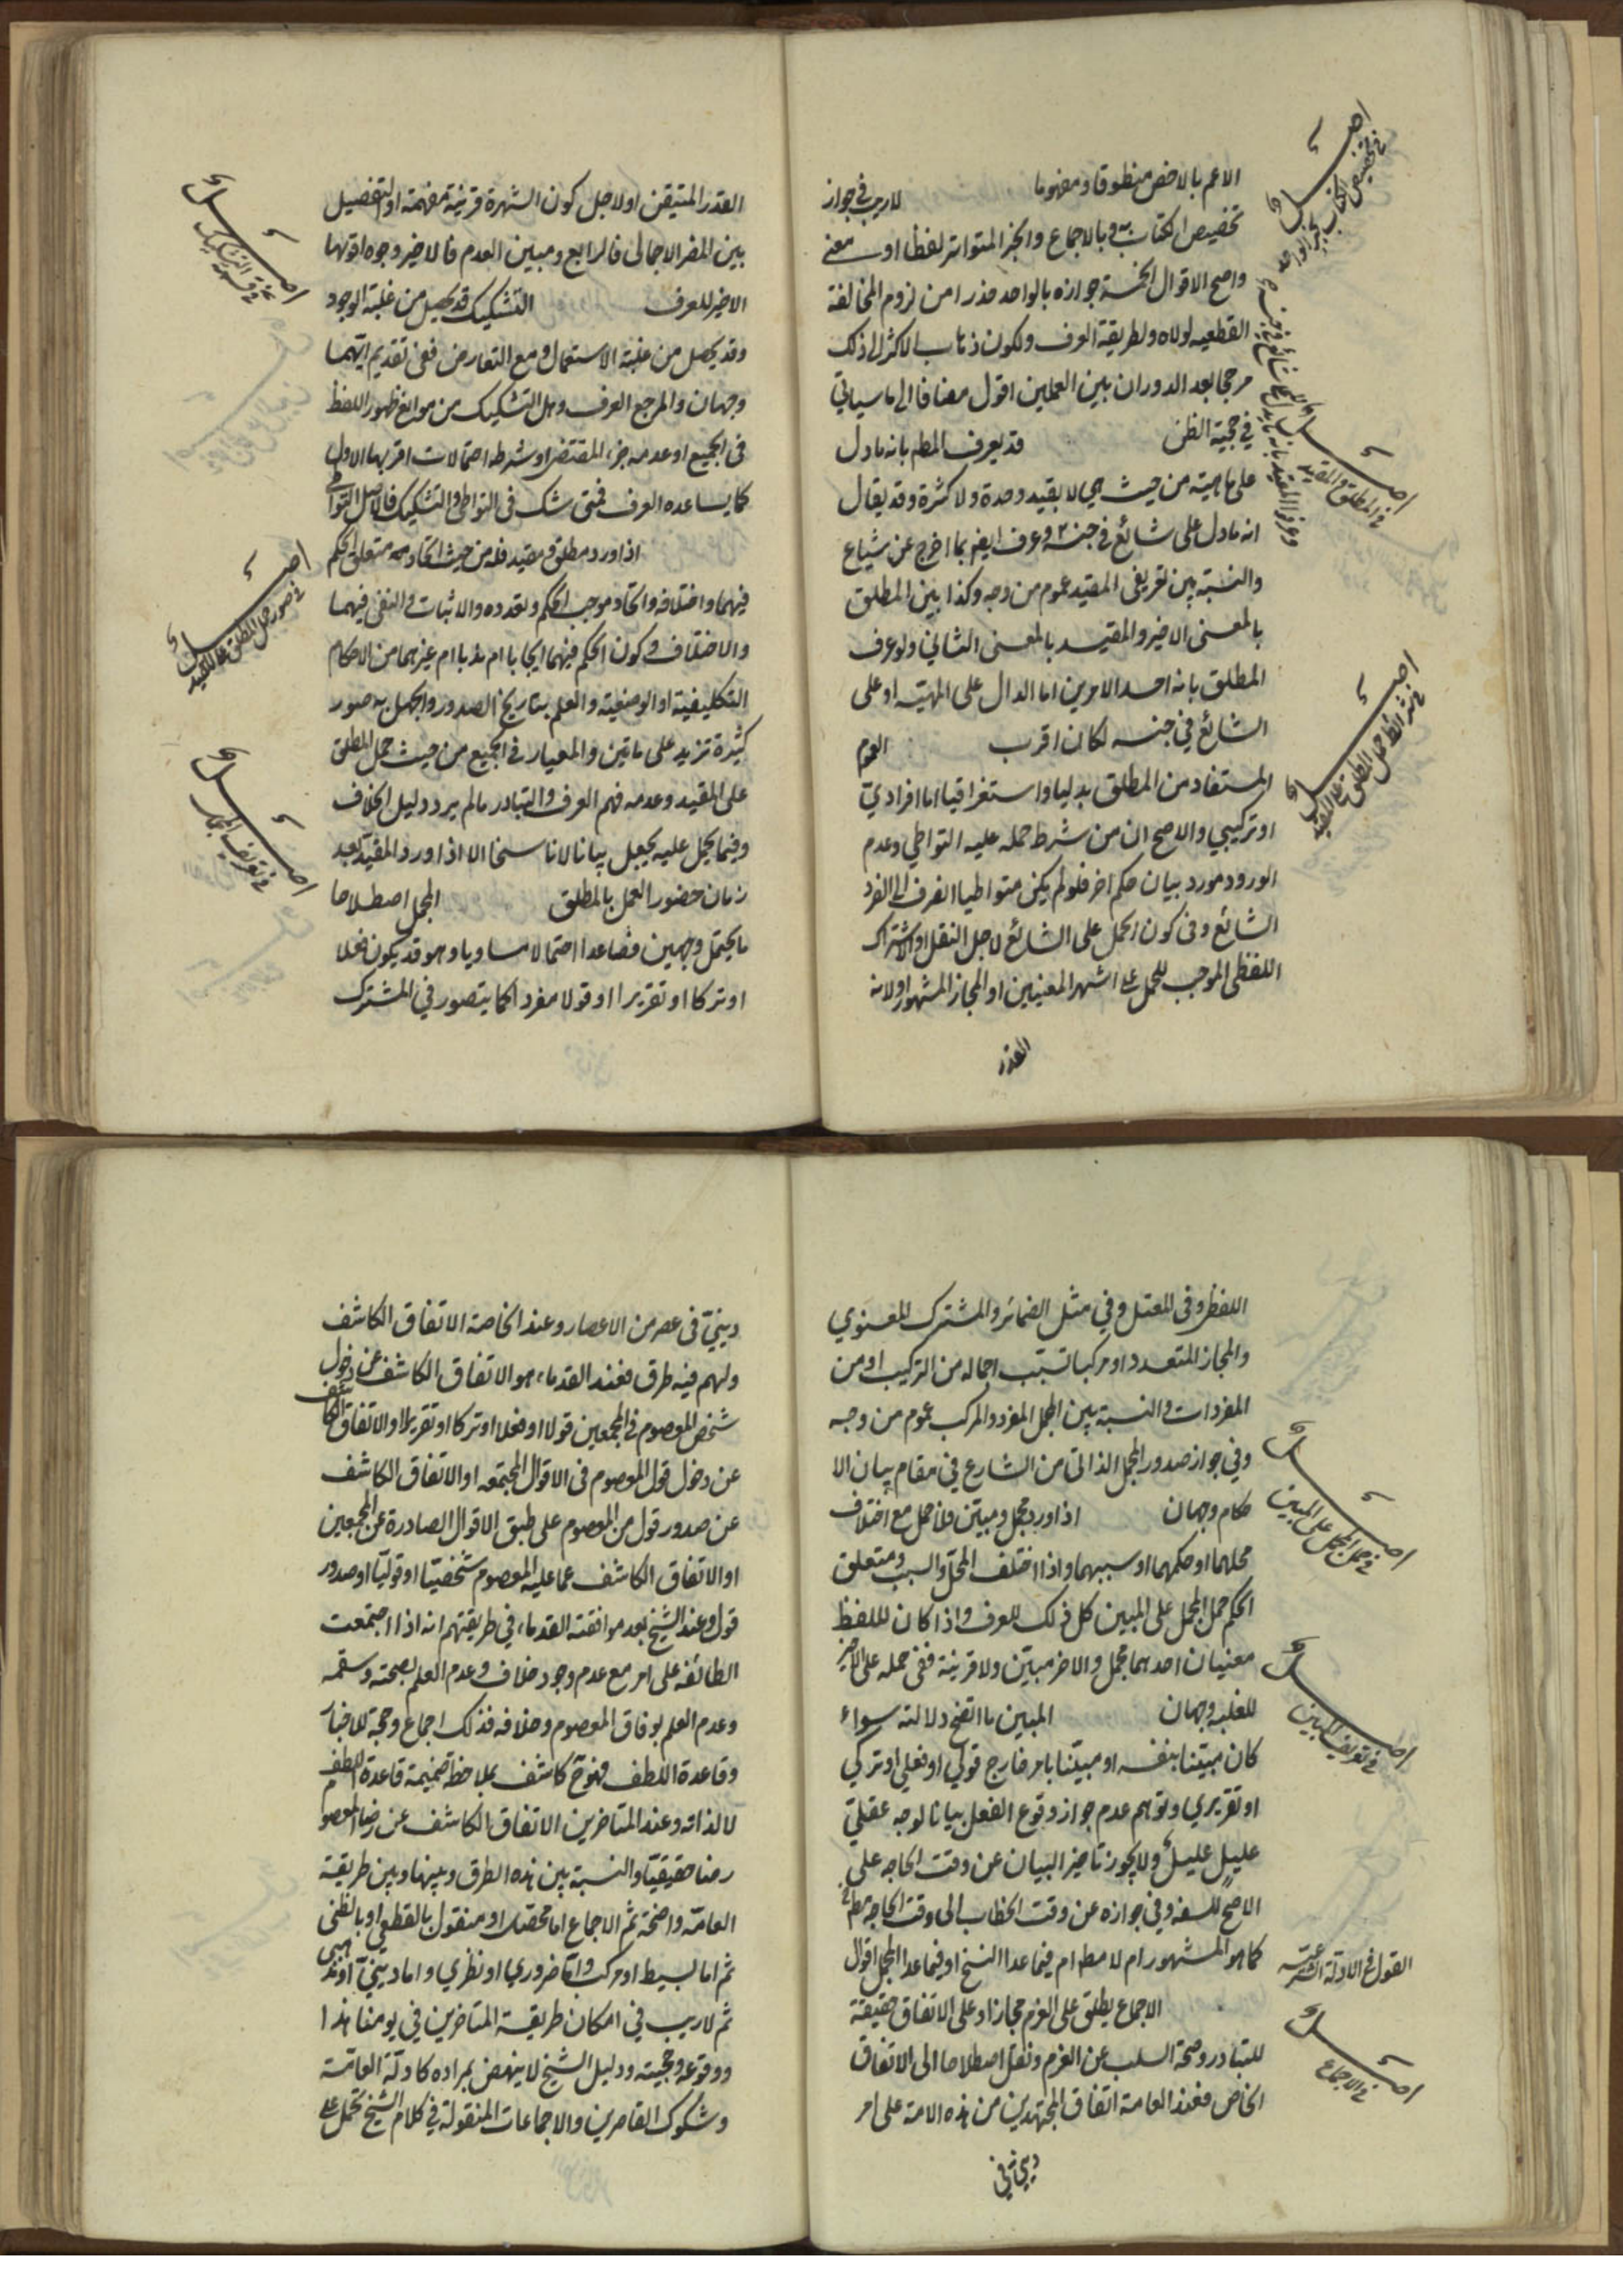 الاعم بالاخص منطوقا ومفهوما لاريب في جواز
تخصيص الكتاب به وبالاجماع والخبر المتواتر لفظا او معنى
واصح الاقوال الخمسة جوازه بالواحد حذرا من لزوم المخالفة
القطعيه لولاه ولطريقة العرف ولكون ذهاب الاكثر الى ذلك
مرجحا بعد الدوران بين العملين اقول مضافا الى ما سياتي
في حجية الظن قد يعرف المطم بانه ما دل
على ماهية من حيث هي لا بقيد وحدة ولا كثرة وقد يقال
انه ما دل على شائع في جنسه وعرف ايضا بما اخرج عن شياع
والنسبة بين تعريفى المقيد عموم من وجه وكذا بين المطلق
بالمعنى الاخير والمقيد بالمعنى الثاني ولو عرف
المطلق بانه احد الامرين اما الدال على المهية او على
الشائع في جنسه لكان اقرب العموم
المستفاد من المطلق بدليا واستغراقيا اما افرادي
او تركيبي والاصح ان من شرط حمله عليه التواطي وعدم
الورود مورد بيان حكم اخر فلو لم يكن متواطيا انصرف الى الفرد
الشائع وفى كون الحمل على الشائع لاجل النقل او الاشتراك
اللفظى الموجب للحمل على اشهر المعنيين او المجاز المشهور او لانه
القدر
اصل
في تخصيص الكتاب بخبر الواحد
اصل
في المطلق والمقيد
اصل
في شرائط حمل المطلق على المقيد
القدر المتيقن او لاجل كون الشهرة قرينة مفهمة او التفصيل
بين المضر الاجمالى فالرابع ومبين العدم فالاخير وجوه اقويها
الاخير للعرف التشكيك قد يحصل من غلبة الوجود
وقد يحصل من غلبة الاستعمال ومع التعارض ففى تقديم ايتهما
وجهان والمرجع العرف وهل التشكيك من موانع ظهور اللفظ
فى الجميع او عدمه جزء المقتضى او شرطه احتمالات اقربها الاول
كما يساعده العرف فمتى شك فى التواطى والتشكيك فالاصل التواطى
اذا ورد مطلق ومقيد فله من حيث اتحاد متعلق الحكم
فيهما واختلافه واتحاد موجب الحكم وتعدده والاثبات والنفى فيهما
والاختلاف وكون الحكم فيهما ايجابا ام ندبا ام غيرهما من الاحكام
التكليفية او الوضعية والعلم بتاريخ الصدور والجهل به صور
كثيرة تزيد على ماتين والمعيار في الجميع من حيث حمل المطلق
على المقيد وعدمه فهم العرف والتبادر ما لم يرد دليل الخلاف
وفيما يحمل عليه يجعل بيانا لا ناسخا الا اذا ورد المقيد بعد
زمان حضور العمل بالمطلق المجمل اصطلاحا
ما يحتمل وجهين فصاعدا احتمالا مساويا وهو قد يكون فعلا
او تركا او تقريرا او قولا مفردا كما يتصور في المشترك
اصل
اصل
في صور حمل المطلق على المقيد
اصل
في تعريف المجمل
اللفظى وفى المعتل وفي مثل الضمائر والمشترك المعنوي
والمجاز المتعدد او مركبا تسبب اجماله من التركيب او من
المفردات والنسبة بين المجمل المفرد والمركب عموم من وجه
وفي جواز صدور المجمل الذاتى من الشارع في مقام بيان الا
حكام وجهان اذا ورد مجمل ومبين فلا حمل مع اختلاف
محلهما او حكمهما او سببهما واذا اختلف المحل والسبب ومتعلق
الحكم حمل المجمل على المبين كل ذلك للعرف واذا كان للفظ
معنيان احدهما مجمل والاخر مبين ولا قرينة ففى حمله على الاخير
للغلبة وجهان المبين ما اتضح دلالته سواء
كان مبينا بنفسه او مبينا بامر خارج قولي او فعلي او تركي
او تقريري وتوهم عدم جواز وقوع الفعل بيانا لوجه عقلي
عليل عليل ولا يجوز تاخير البيان عن وقت الحاجه على
الاصح للسفه وفي جوازه عن وقت الخطاب الى وقت الحاجة مطم
كما هو المشهور ام لا مطم ام فيما عدا النسخ او فيما عدا المجمل اقوال
الاجماع يطلق على العزم مجازا وعلى الاتفاق حقيقة
للتبادر وصحة السلب عن العزم ونقل اصطلاحا الى الاتفاق
الخاص فعند العامة اتفاق المجتهدين من هذه الامة على امر
ديني في
اصل
في حمل المجمل على المبين
اصل
في تعريف المبين
القول في الادلة الشرعية
اصل
في الاجماع
ديني في عصر من الاعصار وعند الخاصة الاتفاق الكاشف
ولهم فيه طرق فعند القدماء هو الاتفاق الكاشف عن دخول
شخص المعصوم في المجمعين قولا او فعلا او تركا او تقريرا او الاتفاق الكاشف
عن دخول قول المعصوم فى الاقوال المجتمعه او الاتفاق الكاشف
عن صدور قول من المعصوم على طبق الاقوال الصادرة عن المجمعين
او الاتفاق الكاشف عما عليه المعصوم شخصيا او قوليا او صدور
قول وعند الشيخ بعد موافقته القدماء في طريقتهم انه اذا اجتمعت
الطائفه على امر مع عدم وجود خلاف وعدم العلم بصحته وسقمه
وعدم العلم بوفاق المعصوم وخلافه فذلك اجماع وحجة للاخبار
وقاعدة اللطف فهو ح كاشف بملاحظة ضميمة قاعدة اللطف
لا لذاته وعند المتاخرين الاتفاق الكاشف عن رضا المعصوم
رضا حقيقيا والنسبة بين هذه الطرق وبينها وبين طريقة
العامة واضحة ثم الاجماع اما محقق او منقول بالقطعى او بالظنى
ثم اما بسيط او مركب واما ضروري او نظري واما ديني او مذهبى
ثم لاريب في امكان طريقة المتاخرين في يومنا هذا
ووقوعه وحجيته ودليل الشيخ لا ينهض بمراده كادلة العامة
وشكوك القاصرين والاجماعات المنقولة في كلام الشيخ تحمل على